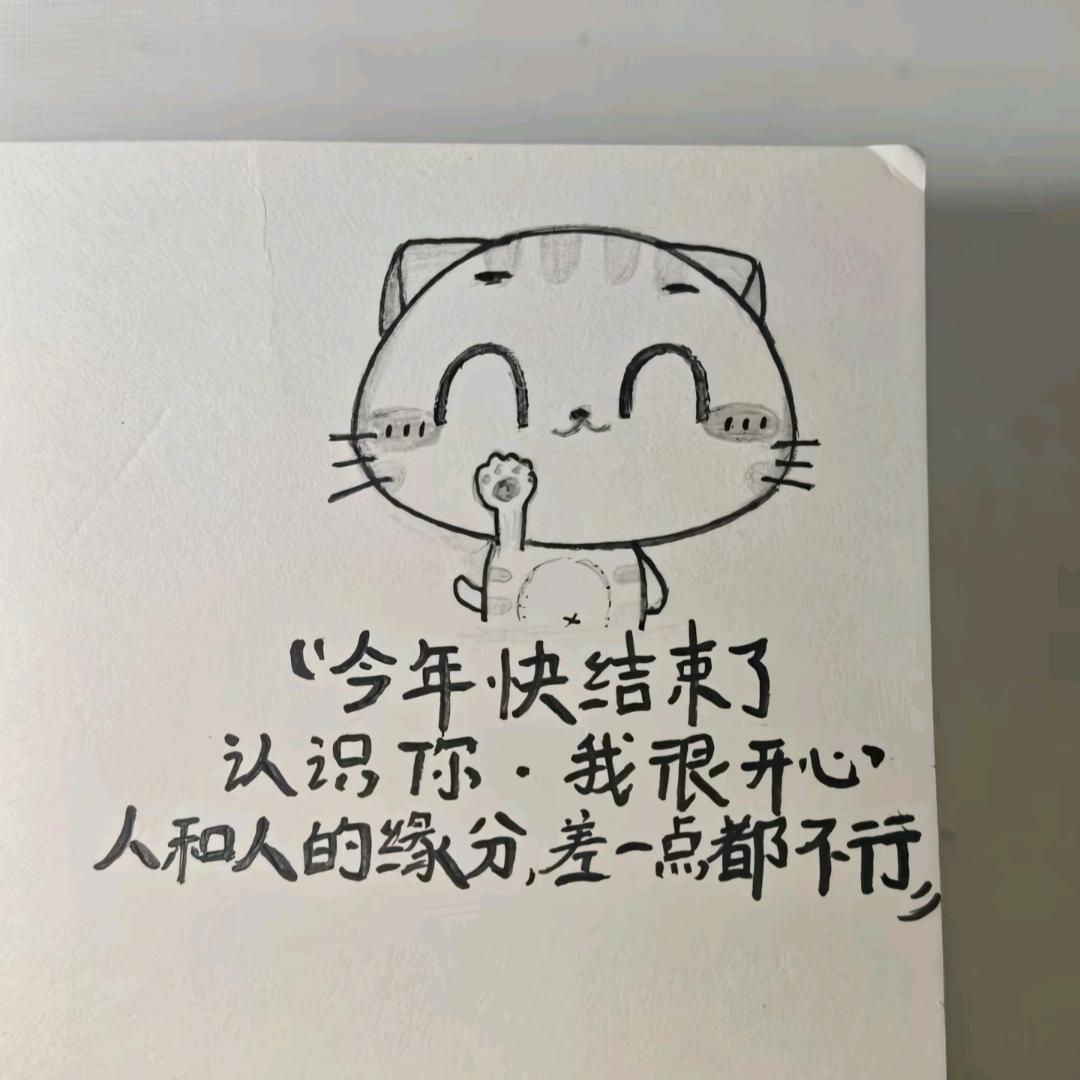 “今年快结束了
认识你.我很开心
人和人的缘分,差一点都不行”